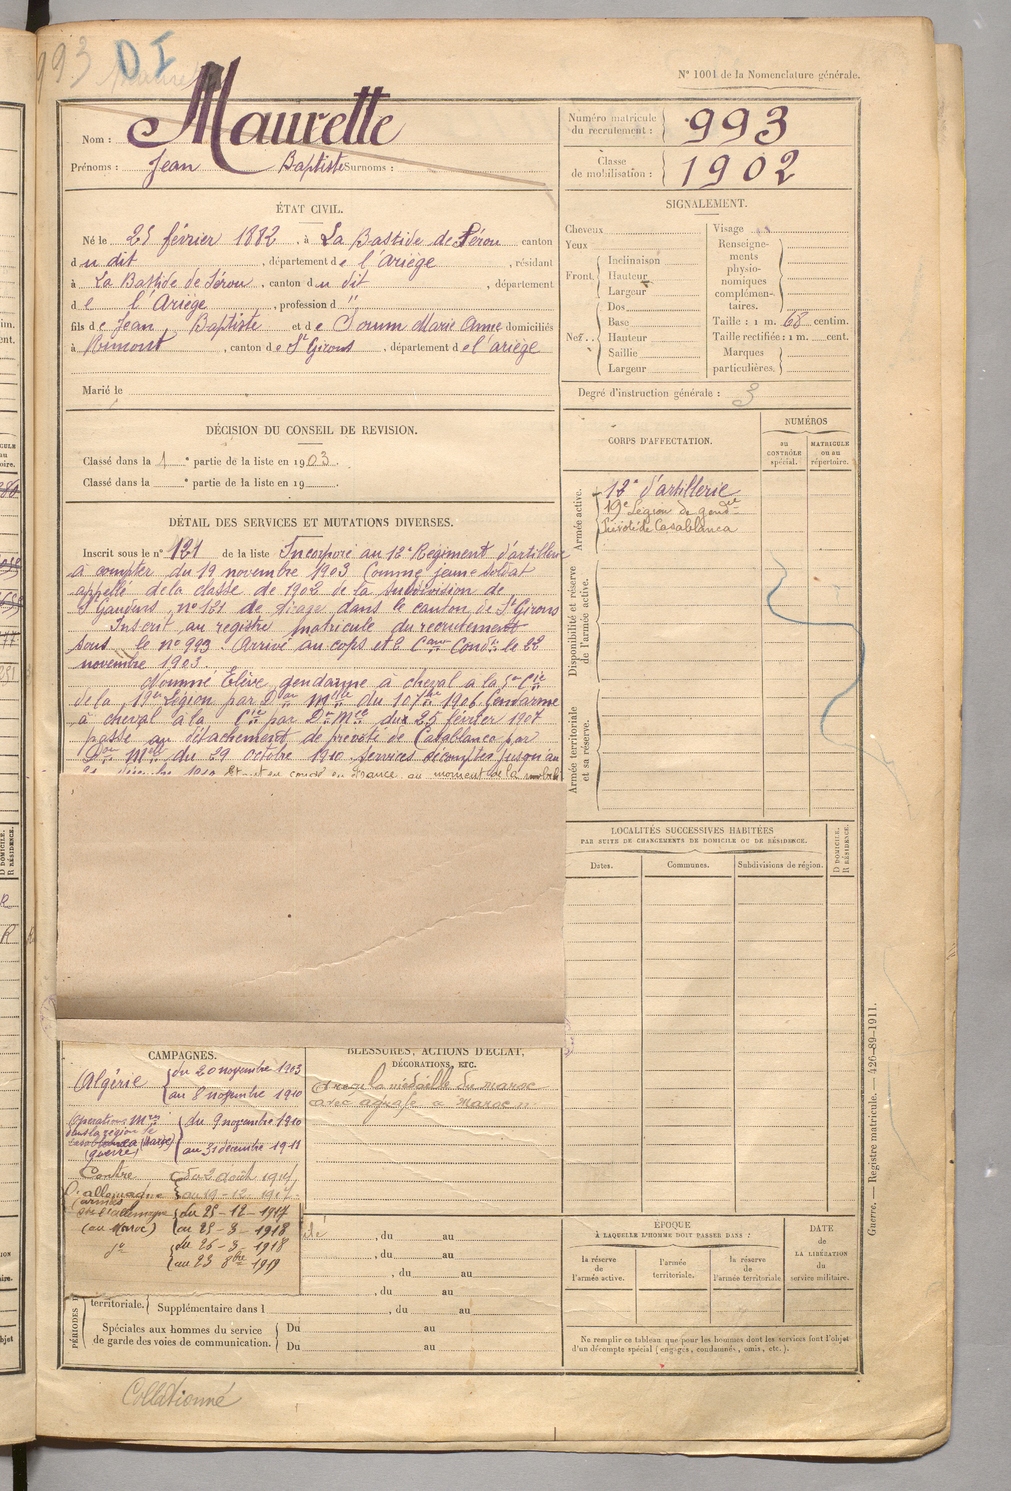 993 D I
N° 1001 de la Nomenclature générale.
Nom : Maurette
Prénoms : Jean Baptiste Surnoms :
Numéro matricule du recrutement : 993
Classe de mobilisation : 1902
ÉTAT CIVIL.
Né le 25 février 1882, à La Bastide de Sérou canton
du dit, département de l'Ariège, résidant
à La Bastide de Sérou, canton du dit, département
de l'Ariège, profession d "
fils de Jean Baptiste et de Sorum Marie Anne domiciliés
à Rimont, canton de St Girons, département de l'ariège
Marié le
SIGNALEMENT.
Cheveux
Yeux
Front. Inclinaison
Hauteur
Largeur
Nez. Dos
Base
Hauteur
Saillie
Largeur
Visage
Renseignements physionomiques complémentaires.
Taille : 1 m. 68 centim.
Taille rectifiée : 1 m. cent.
Marques particulières.
Degré d'instruction générale : 3
DÉCISION DU CONSEIL DE REVISION.
Classé dans la 1 e partie de la liste en 1903.
Classé dans la e partie de la liste en 19
CORPS D'AFFECTATION.
NUMÉROS
au CONTRÔLE spécial.
MATRICULE ou au répertoire.
Armée active.
12e d'artillerie
19e Légion de gend
Prévôté de Casablanca
Disponibilité et réserve de l'armée active.
Armée territoriale et sa réserve.
DÉTAIL DES SERVICES ET MUTATIONS DIVERSES.
Inscrit sous le n° 121 de la liste Incorporé au 12e Régiment d'artillerie
à compter du 19 novembre 1903 Comme jeune soldat
appellé de la classe de 1902 de la subdivision de
St Gaudens n° 121 de tirage dans le canton de St Girons
Inscrit au registre matricule du recrutement
sous le n° 993. Arrivé au corps et 2e Cer Condr le 22
novembre 1903.
Nommé Elève gendarme à cheval a la 5e Cie
de la 19e Légion par Don Mlle du 10 7bre 1906 Gendarme
à cheval à la Cie par Dn Mlle du 25 février 1907
passé au détachement de prévoté de Casablanca par
Don Mlle du 29 octobre 1910. Services décomptés jusqu'au
31 décembre 1910 Etant en congé en France au moment de la mobil
LOCALITÉS SUCCESSIVES HABITÉES
PAR SUITE DE CHANGEMENTS DE DOMICILE OU DE RÉSIDENCE.
Dates. Communes. Subdivisions de région. D DOMICILE. R RÉSIDENCE.
CAMPAGNES.
Algérie du 20 novembre 1903
au 8 novembre 1910
Opérations Mres
dans la région de
Casablanca (Maroc)
(guerre)
du 9 novembre 1910
au 31 décembre 1911
Contre l'allemagne
du 2 août 1914
au 19-12-1917
l'allemagne
(au Maroc)
du 25-12-1917
au 25-3-1918
do
du 26-3-1918
au 23 8bre 1919
BLESSURES, ACTIONS D'ÉCLAT,
DÉCORATIONS, ETC.
a reçu la médaille du maroc
avec agrafe "Maroc"
, du au
, du au
, du au
, du au
PÉRIODES
territoriale. Supplémentaire dans l , du au
Spéciales aux hommes du service
de garde des voies de communication.
Du au
Du au
ÉPOQUE
À LAQUELLE L'HOMME DOIT PASSER DANS :
la réserve de l'armée active.
l'armée territoriale.
la réserve de l'armée territoriale
DATE de LA LIBÉRATION du service militaire.
Ne remplir ce tableau que pour les hommes dont les services font l'objet
d'un décompte spécial (engagés, condamnés, omis, etc.).
Guerre. — Registre matricule. — 426-89-1911.
Collationné